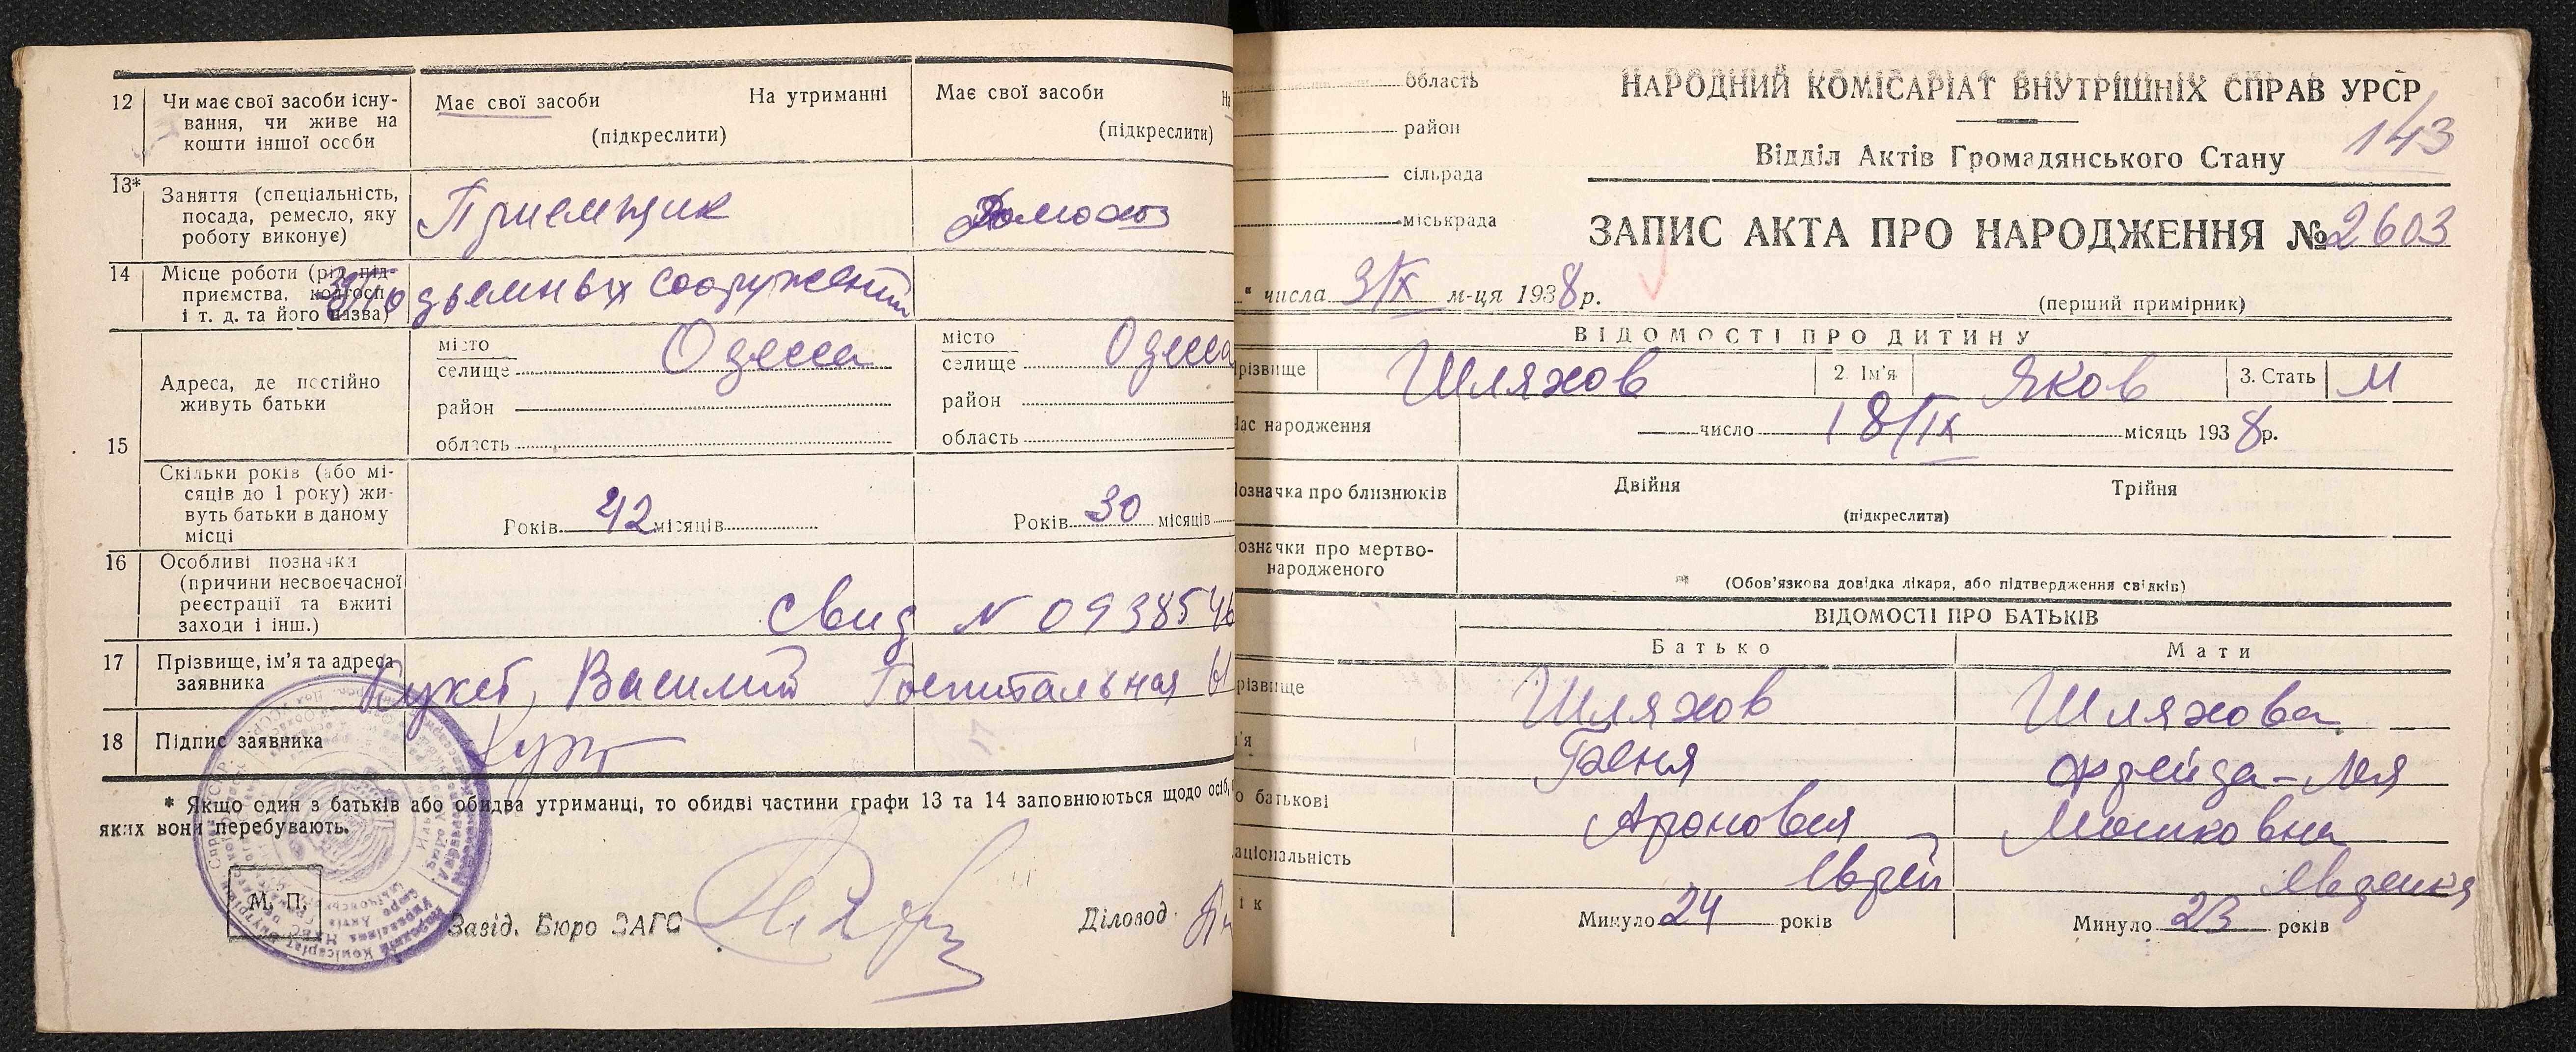 12 Чи має свої засоби існу-
вання, чи живе на
кошти іншої особи
Має свої засоби На утриманні
(підкреслити)
Має свої засоби На
(підкреслити)
13* Заняття (спеціальність,
посада, ремесло, яку
роботу виконує)
Приемщик
Домохоз
14 Місце роботи (рід під-
приємства, колгосп
і т. д. та його назва)
Подъемных сооружений
15
Адреса, де постійно
живуть батьки
місто
селище Одесса
район
область
місто
селище Одесса
район
область
Скільки років (або мі-
сяців до 1 року) жи-
вуть батьки в даному
місці
Років 42 місяців
Років 30 місяців
16 Особливі позначки
(причини несвоєчасної
реєстрації та вжиті
заходи і інш.)
Свид N 0938546
17 Прізвище, ім'я та адреса
заявника
Василий Госпитальная
18 Підпис заявника
* Якщо один з батьків або обидва утриманці, то обидві частини графи 13 та 14 заповнюються щодо осіб,
яких вони перебувають.
М. П.
Завід. Бюро ЗАГС
Діловод
область
район
сільрада
міськрада
НАРОДНИЙ КОМІСАРІАТ ВНУТРІШНІХ СПРАВ УРСР
143
Відділ Актів Громадянського Стану
ЗАПИС АКТА ПРО НАРОДЖЕННЯ № 2603
" числа 3/X м-ця 1938 р.
(перший примірник)
ВІДОМОСТІ ПРО ДИТИНУ
різвище Шляхов 2. Ім'я Яков 3. Стать М
Час народження
число 18/IX місяць 1938 р.
Позначка про близнюків
Двійня Трійня
(підкреслити)
Позначки про мертво-
народженого
(Обов'язкова довідка лікаря, або підтвердження свідків)
ВІДОМОСТІ ПРО БАТЬКІВ
Батько Мати
різвище Шляхов Шляхова
м'я Беня Фрейда-Лея
о батькові Аронович Мошковна
аціональність Еврей Еврейка
ік Минуло 24 років Минуло 23 років